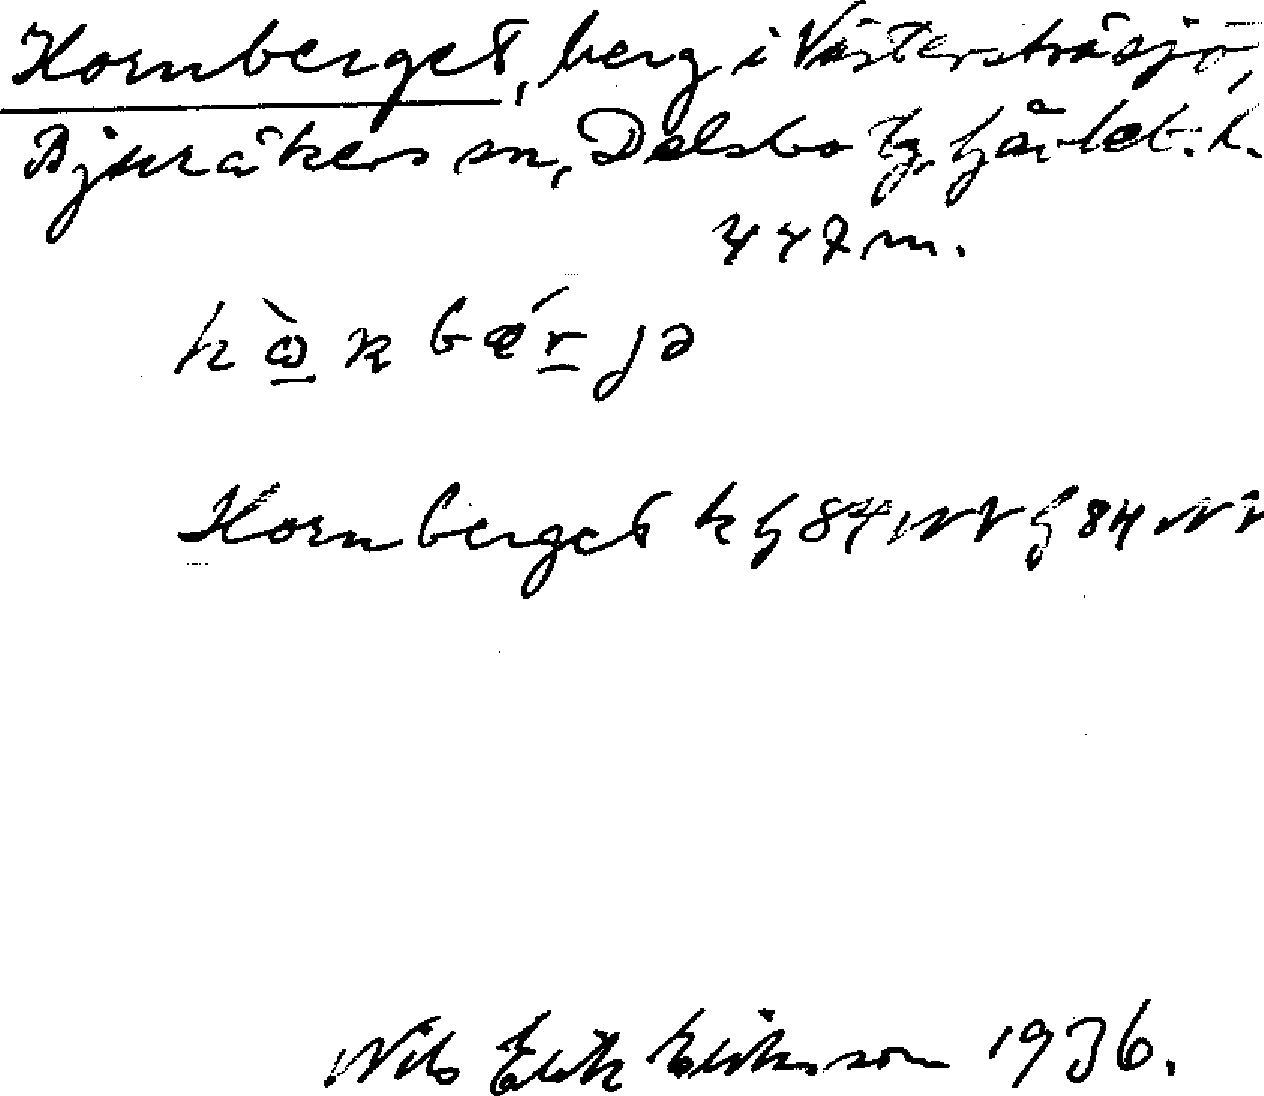 Kornberget, berg i Västersträsjö,
Bjuråkers sn, Delsbo tg, Gävleb. l.
447 m.
Kornberget k g 84 NV g 84 NV
Nils Erik Eriksson 1936.